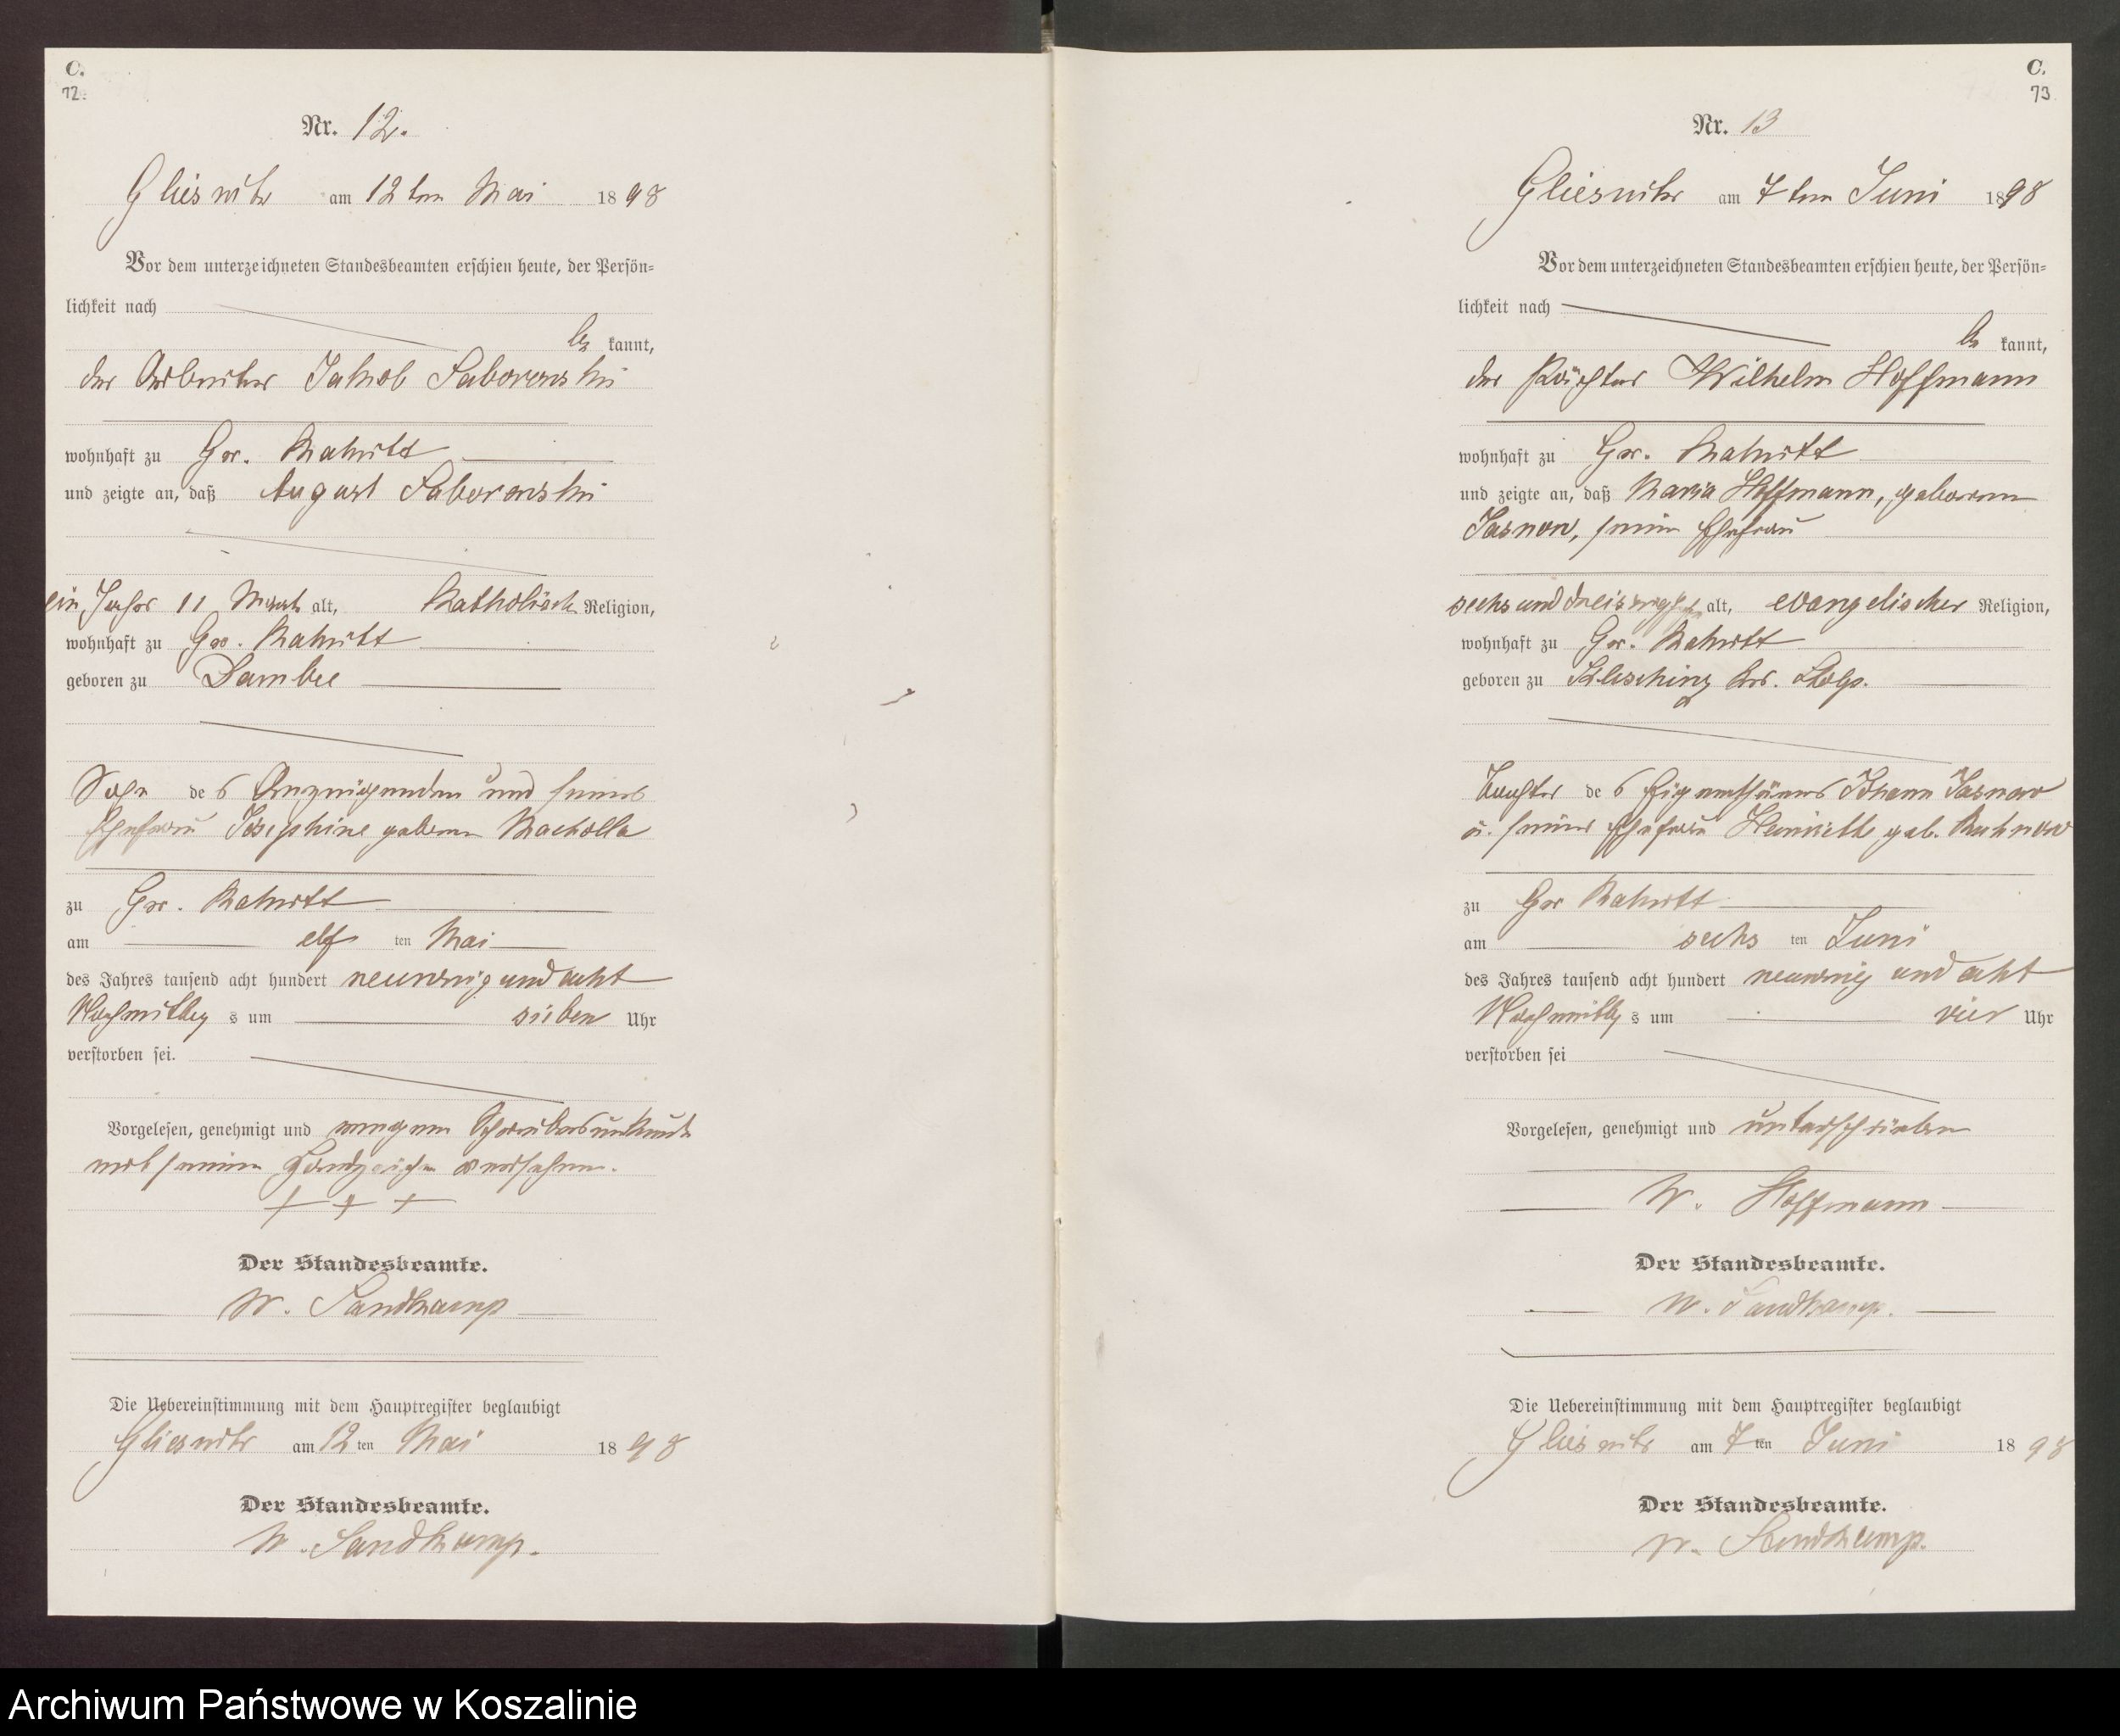 C.
72.
Nr. 12.
Gliesnitz am 12ten Mai 1898
Vor dem unterzeichneten Standesbeamten erschien heute, der Persön=
lichkeit nach
be kannt,
der Arbeiter Jakob Saborowski
wohnhaft zu Gr. Rakitt
und zeigte an, daß August Saborowski
ein Jahr 11 Monat alt, Katholisch Religion,
wohnhaft zu Gr. Rakitt
geboren zu Dambee
Sohn des Anzeigenden und seiner
Ehefrau Josephine geborene Macholla
zu Gr. Rakitt
am elf ten Mai
des Jahres tausend acht hundert neunzig und acht
Nachmittag s um sieben Uhr
verstorben sei.
Vorgelesen, genehmigt und wegen Schreibensunkunde
mit seinem Handzeichen versehen.
+ + +
Der Standesbeamte.
W. Sandkamp
Die Uebereinstimmung mit dem Hauptregister beglaubigt
Gliesnitz am 12ten Mai 1898
Der Standesbeamte.
W. Sandkamp.
C.
73
Nr. 13
Gliesnitz am 7ten Juni 1898
Vor dem unterzeichneten Standesbeamten erschien heute, der Persön=
lichkeit nach
be kannt,
der Pächter Wilhelm Hoffmann
wohnhaft zu Gr. Rakitt
und zeigte an, daß Maria Hoffmann, geborene
Jasnow, seine Ehefrau
sechs und dreissig Jahr alt, evangelischer Religion,
wohnhaft zu Gr. Rakitt
geboren zu Klesching Krs. Stolp.
Tochter des Eigenthümers Johann Jasnow
u. seiner Ehefrau Heinriette geb. Kuhnow
zu Gr Rakitt
am sechs ten Juni
des Jahres tausend acht hundert neunzig und acht
Nachmittag s um vier Uhr
verstorben sei
Vorgelesen, genehmigt und unterschrieben
W. Hoffmann
Der Standesbeamte.
W. Sandkamp.
Die Uebereinstimmung mit dem Hauptregister beglaubigt
Gliesnitz am 7ten Juni 1898
Der Standesbeamte.
W. Sandkamp.
Archiwum Państwowe w Koszalinie